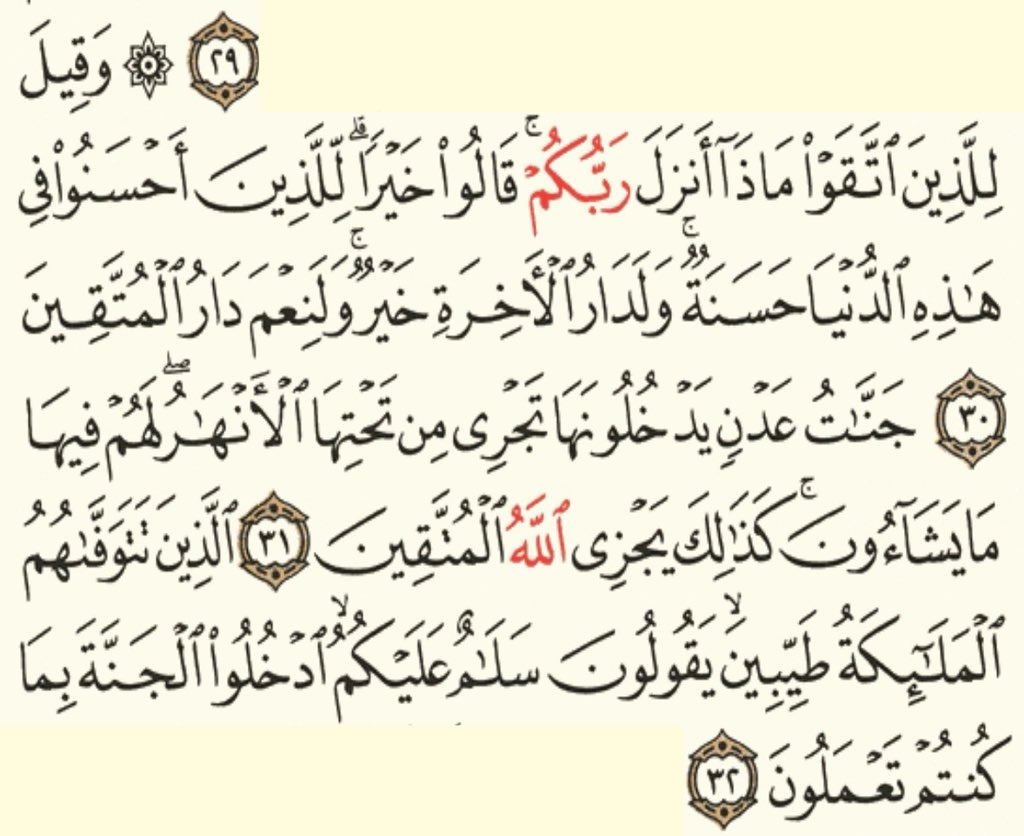 ٢٩ ۞ وَقِيلَ
لِلَّذِينَ ٱتَّقَوْا۟ مَاذَآ أَنزَلَ رَبُّكُمْ ۚ قَالُوا۟ خَيْرًا ۗ لِّلَّذِينَ أَحْسَنُوا۟ فِى
هَـٰذِهِ ٱلدُّنْيَا حَسَنَةٌ ۚ وَلَدَارُ ٱلْـَٔاخِرَةِ خَيْرٌ ۚ وَلَنِعْمَ دَارُ ٱلْمُتَّقِينَ
٣٠ جَنَّـٰتُ عَدْنٍ يَدْخُلُونَهَا تَجْرِى مِن تَحْتِهَا ٱلْأَنْهَـٰرُ ۖ لَهُمْ فِيهَا
مَا يَشَآءُونَ ۚ كَذَٰلِكَ يَجْزِى ٱللَّهُ ٱلْمُتَّقِينَ ٣١ ٱلَّذِينَ تَتَوَفَّىٰهُمُ
ٱلْمَلَـٰٓئِكَةُ طَيِّبِينَ ۙ يَقُولُونَ سَلَـٰمٌ عَلَيْكُمُ ۙ ٱدْخُلُوا۟ ٱلْجَنَّةَ بِمَا
كُنتُمْ تَعْمَلُونَ ٣٢